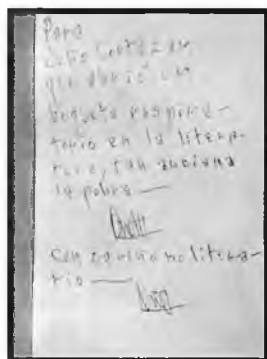 Para
que abrió un
boquete respira-
torio en la litera-
tura, tan anciana
la pobre —
Con cariño no litera-
rio —